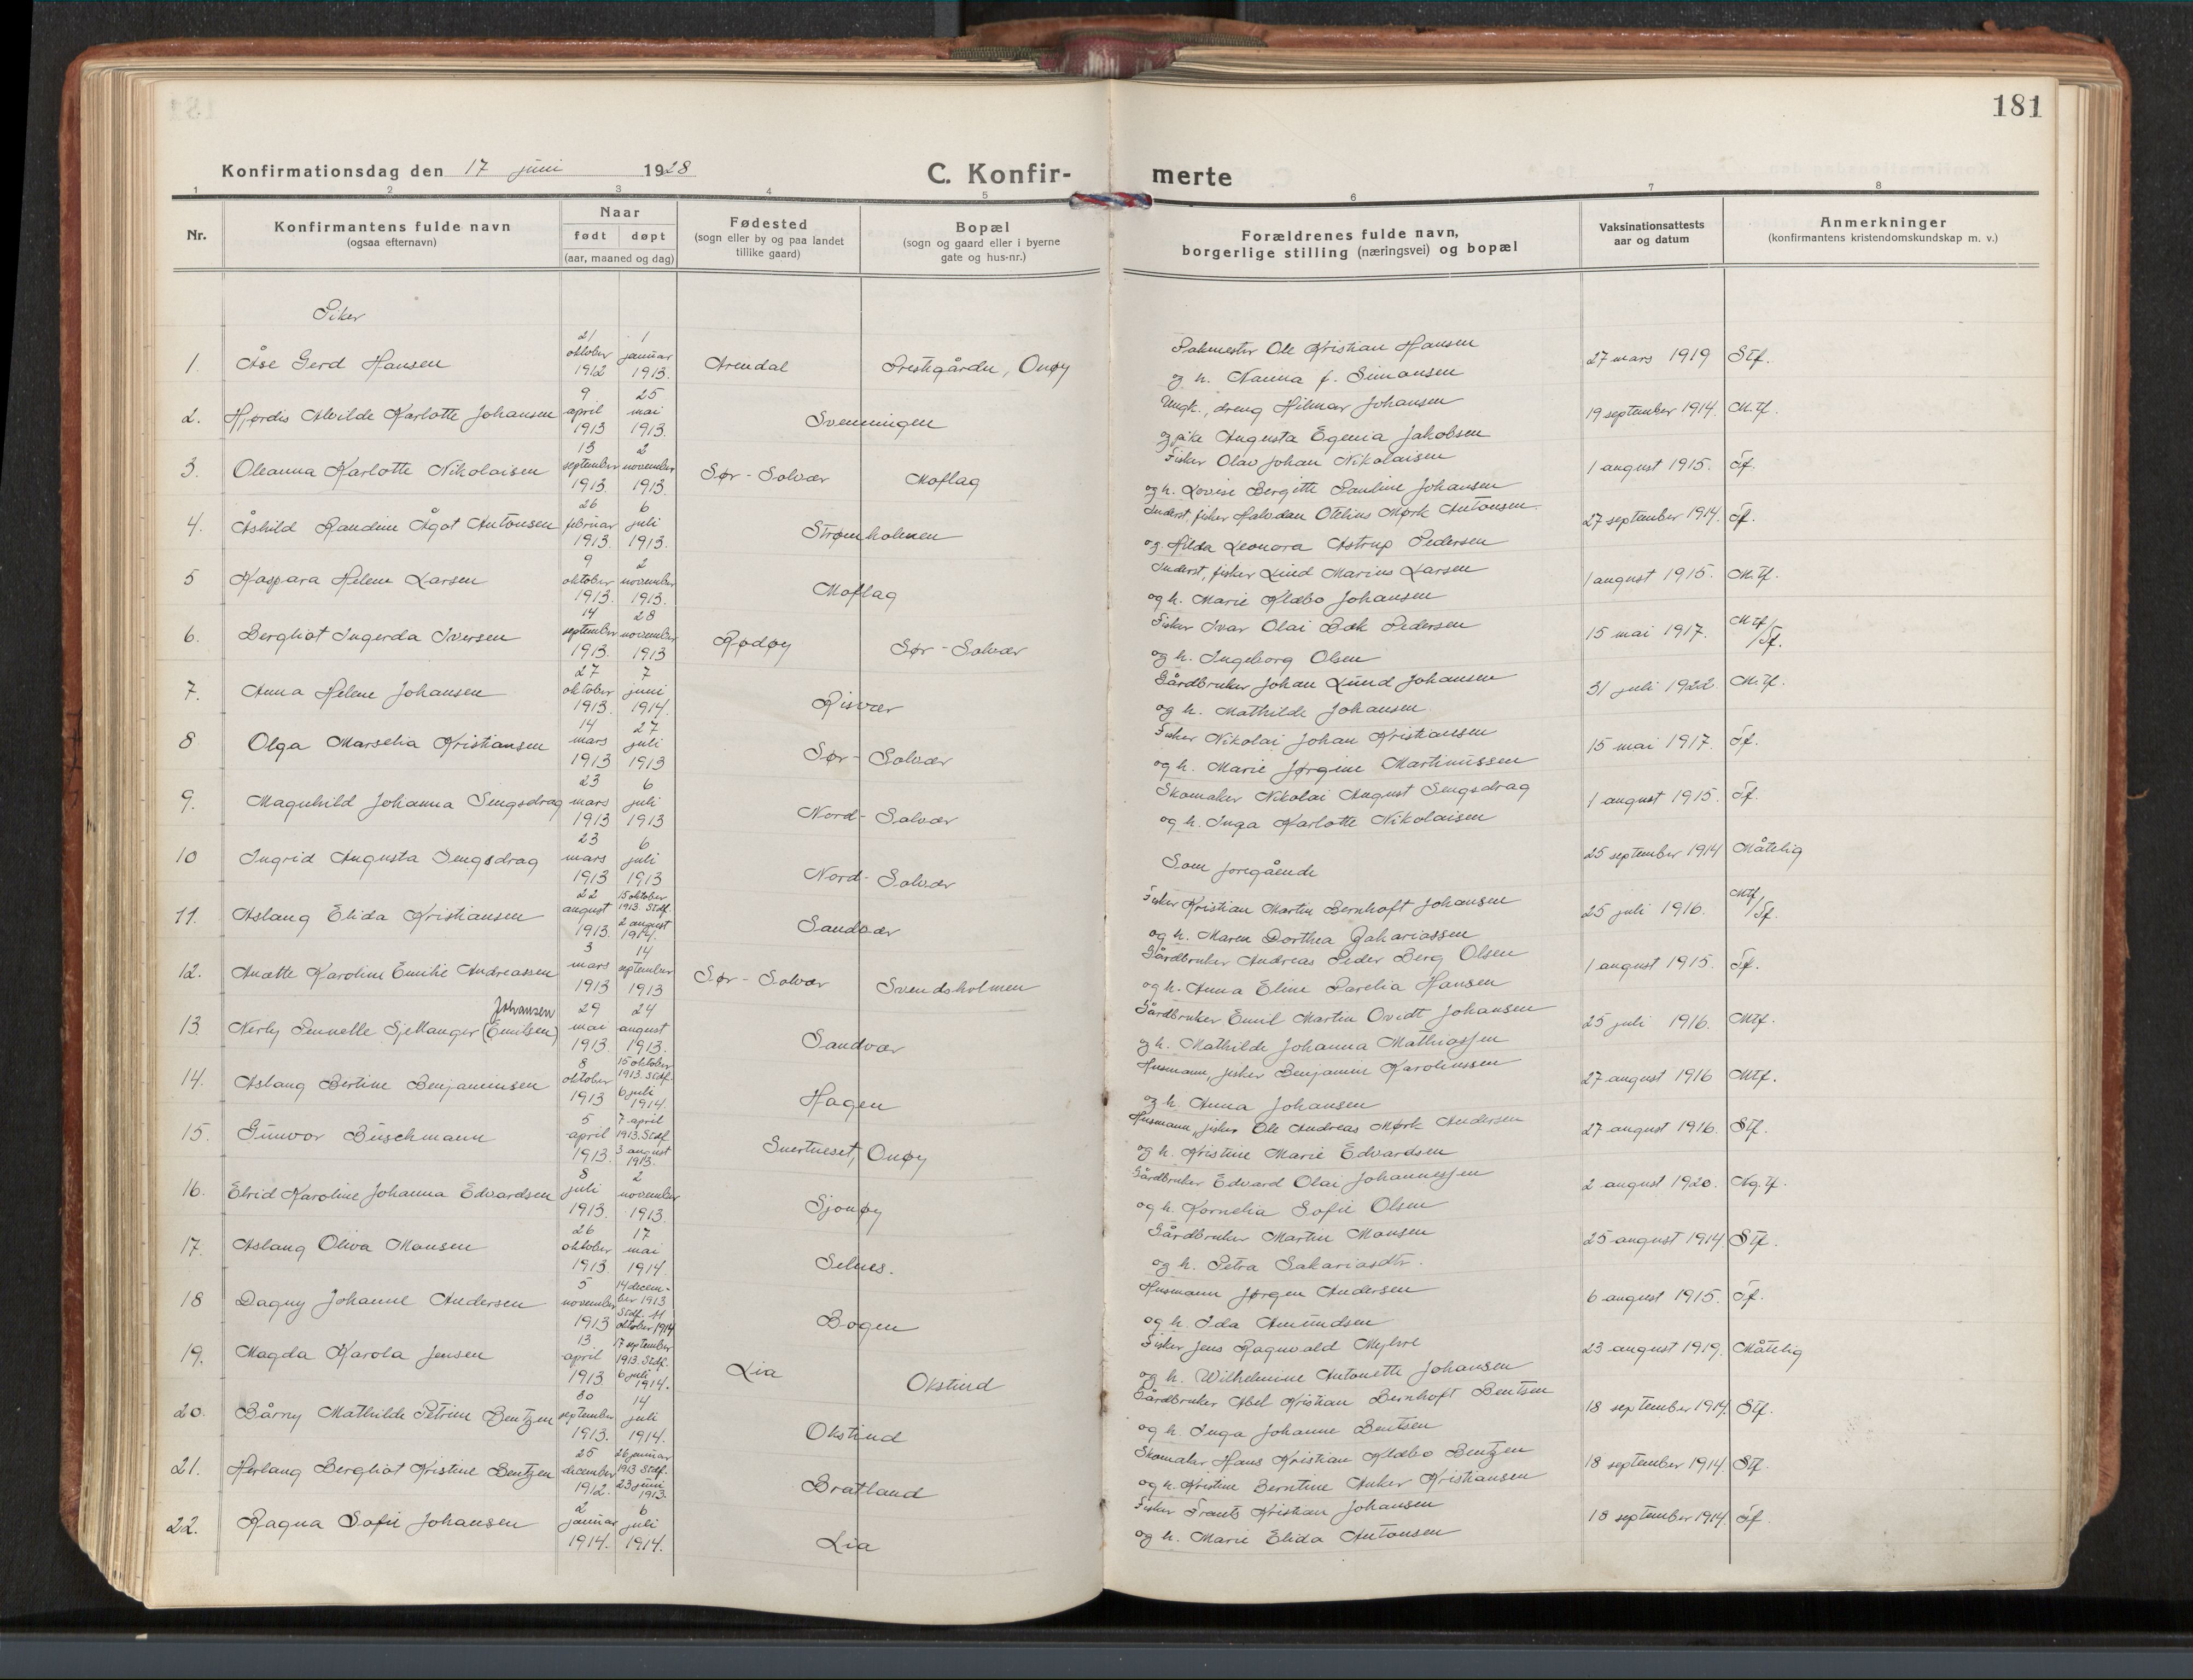 181
Konfirmationsdag den 17 juni 1928 C. Konfir- merte
1 2 3 4 5 6 7 8
Nr. Konfirmantens fulde navn (ogsaa efternavn) Naar født døpt (aar, maaned og dag) Fødested (sogn eller by og paa landet tillike gaard) Bopæl (sogn og gaard eller i byerne gate og hus-nr.) Forældrenes fulde navn, borgerlige stilling (næringsvei) og bopæl Vaksinationsattests aar og datum Anmerkninger (konfirmantens kristendomskundskap m. v.)
Piker
1. Åse Gerd Hansen 21 oktober 1912 1 januar 1913. Arendal Prestigårdn, Onøy Pakmester Ole Kristian Hansen og h. Nanna f. Simonsen 27 mars 1919 Stf.
2. Hjørdis Alvilde Karlotte Johansen 9 april 1913 25 mai 1913. Svenningen Ungk., dreng Hilmar Johansen og pike Augusta Egenia Jakobsen 19 september 1914. M.tf.
3. Oleanna Karlotte Nikolaisen 13 september 1913. 2 november 1913. Sør-Solvær Moflag Fisker Olav Johan Nikolaisen og h. Lovise Bergitte Pauline Johansen 1 august 1915. Tf.
4. Åshild Raudine Ågot Antonsen 26 februar 1913. 6 juli 1913. Strømholmen Inderst, fisker Halvdan Otelius Mørk Antonsen og Hilda Leonora Astrup Pedersen 27 september 1914. Tf.
5 Kaspara Helene Larsen 9 oktober 1913. 2 november 1913. Moflag Inderst, fisker Lind Marius Larsen og h. Marie Klæbo Johansen 1 august 1915. M.tf.
6. Bergliot Ingerda Iversen 14 september 1913. 28 november 1913 Rødøy Sør-Solvær Fisker Ivar Olai Bæk Pedersen og h. Ingeborg Olsen 15 mai 1917. Mtf/Tf.
7. Anna Helene Johansen 27 oktober 1913. 7 juni 1914. Risvær Gårdbruker Johan Lund Johansen og h. Mathilde Johansen. 31 juli 1922 M.tf.
8 Olga Marselia Kristiansen 14 mars 1913 27 juli 1913 Sør-Solvær Fisker Nikolai Johan Kristiansen og h. Marie Jørgine Martinussen 15 mai 1917. Tf.
9. Magnhild Johanna Sengsdrag 23 mars 1913 6 juli 1913 Nord-Solvær Skomaker Nikolai August Sengsdrag og h. Inga Karlotte Nikolaisen 1 august 1915. Tf.
10 Ingrid Augusta Sengsdrag 23 mars 1913 6 juli 1913 Nord-Solvær Som foregående 25 september 1914 Måtelig
11. Aslaug Elida Kristiansen 22 august 1913. 15 oktober 1913. Stdf. 2 august 1914. Sandvær Fisker Kristian Martin Bernhoft Johansen og h. Maren Dorthea Zakariassen 25 juli 1916. Mtf/Tf.
12. Anætte Karoline Emilie Andreassen 3 mars 1913 14 september 1913 Sør-Solvær Svendsholmen Gårdbruker Andreas Peder Berg Olsen og h. Anna Eline Parelia Hansen 1 august 1915. Tf.
Johansen
13 Nerly Pernelle Sjellanger (Emilsen) 29 mai 1913. 24 august 1913. Sandvær Gårdbruker Emil Martin Ovidt Johansen og h. Mathilde Johanna Mathiassen 25 juli 1916. Mtf.
14. Aslaug Bertine Benjaminsen 8 oktober 1913 15 oktober 1913. Stdf. 6 juli 1914. Hagen Husmann, fisker Benjamin Karolinssen og h. Anna Johansen 27 august 1916 Mtf.
15. Gunvor Buschmann 5 april 1913. 7 april 1913. Stdf 3 august 1913. Snertneset, Onøy Husmann, fisker Ole Andreas Mørk Andersen og h. Kristine Marie Edvardsen 27 august 1916. Stf.
16. Elvid Karoline Johanna Edvardsen 8 juli 1913. 2 november 1913. Sjonøy Gårdbruker Edvard Olai Johannessen og h. Kornelia Sofie Olsen 2 august 1920. Ng.tf.
17. Aslaug Oliva Monsen 26 oktober 1913 17 mai 1914 Selnes. Gårdbruker Martin Monsen og h. Petra Sakariasdtr. 25 august 1914. Stf.
18 Dagny Johanne Andersen 5 november 1913 14 decem-ber 1913 Stdf. 11 oktober 1914 Bogen Husmann Jørgen Andersen og h. Ida Amundsen 6 august 1915. Tf.
19. Magda Karola Jensen 13 april 1913 17 september 1913. Stdf. 6 juli 1914. Lia Okstind Fisker Jens Ragnvald Myhre og h. Wilhelmine Antonette Johansen 23 august 1919. Måtelig
20. Bårny Mathilde Petrine Bentzen 30 september 1913. 14 juli 1914. Okstind Gårdbruker Abel Kristian Bernhoft Bentsen og h. Inga Johanne Bentsen 18 september 1914. Stf.
21. Herlaug Bergliot Kristine Bentzen 25 december 1912. 26 januar 1913 Stdf. 23 juni 1913. Bratland Skomaker Hans Kristian Klæbo Bentzen og h. Kristine Berntine Anker Kristiansen 18 september 1914. Stf.
22. Ragna Sofie Johansen 2 januar 1914. 6 juli 1914. Lia Fisker Frants Kristian Johansen og h. Marie Elida Antonsen 18 september 1914. Tf.